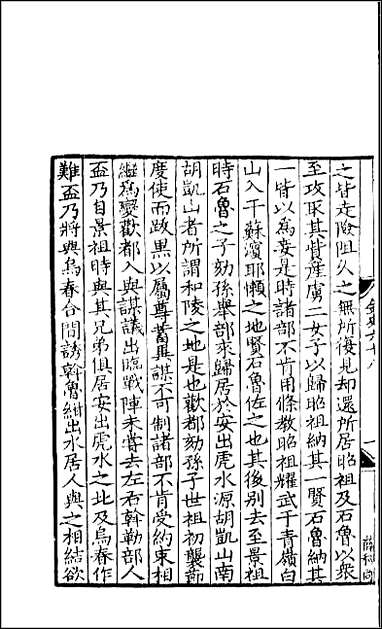 之皆走險阻久之無所復見却還所居昭祖及石魯以衆
至攻取其貲產虜二女子以歸昭祖納其一賢石魯納其
一皆以爲妾是時諸部不肯用條教昭祖耀武于青嶺白
山入于蘇濱耶懶之地賢石魯佐之也其後別去至景祖
時石魯之子劾孫舉部來歸居於安出虎水源胡凱山南
胡凱山者所謂和陵之地是也歡都劾孫子世祖初襲節
度使而跋黑以屬尊蓄異謀不可制諸部不肯受約束相
繼爲變歡都入與謀議出臨戰陣未嘗去左右斡勒部人
盃乃自景祖時與其兄弟俱居安出虎水之北及烏春作
難盃乃將與烏春合間誘斡魯紺出水居人與之相結欲